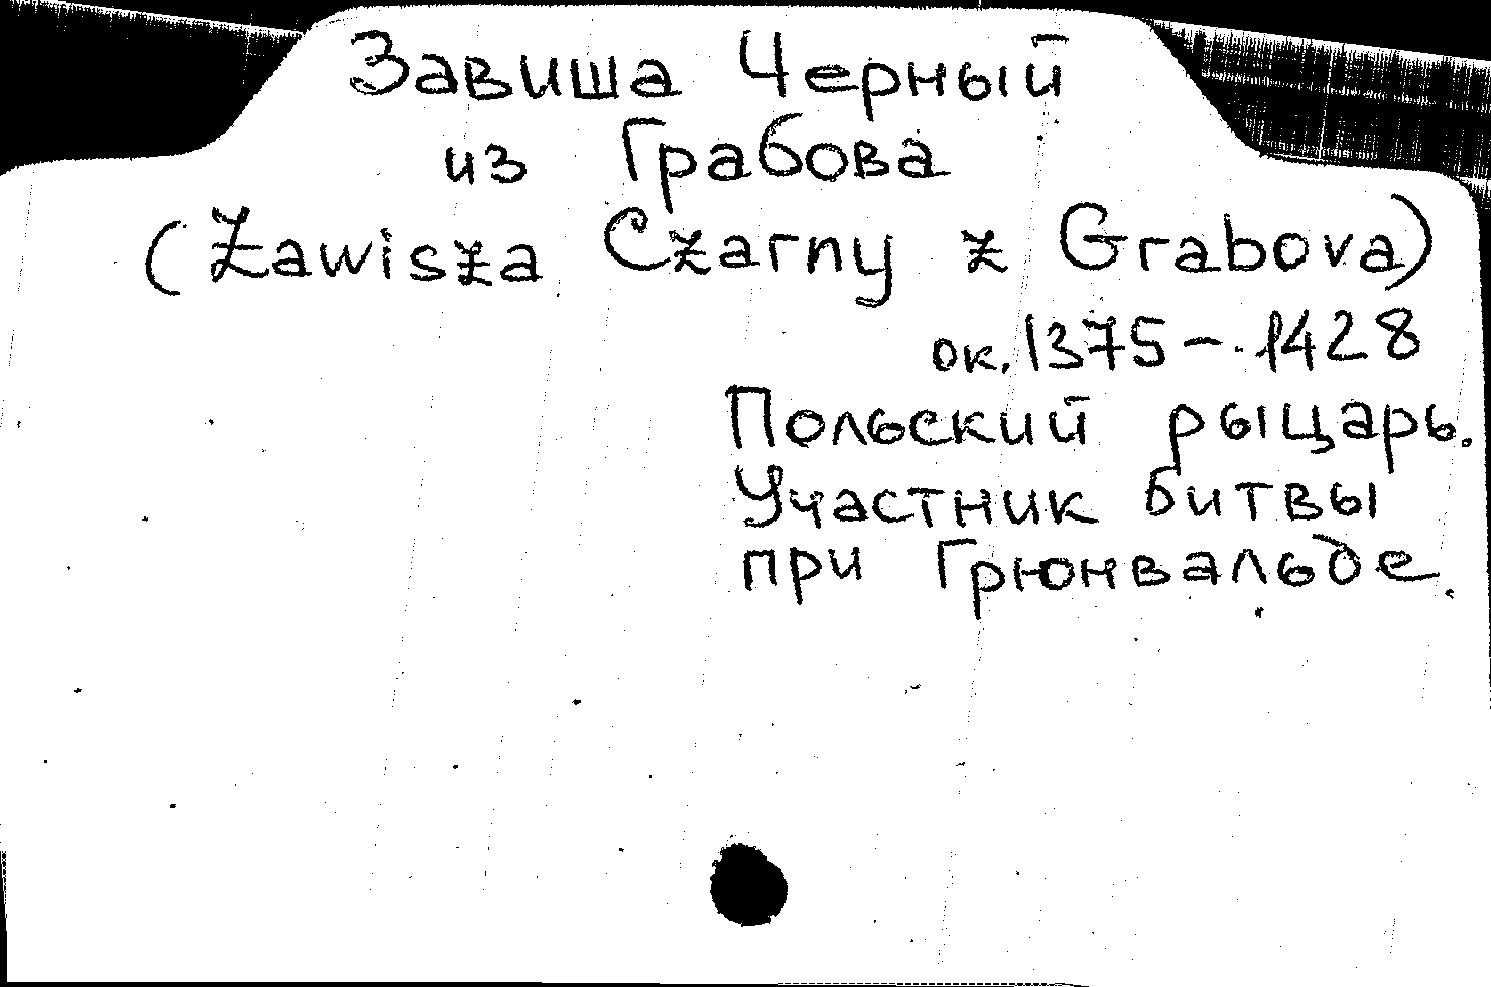 Завиша Черный
из Грабова
(Zawisza Czarny z Grabova)
ок. 1375 – 1428
Польский рыцарь.
Участник битвы
при Грюнвальде.